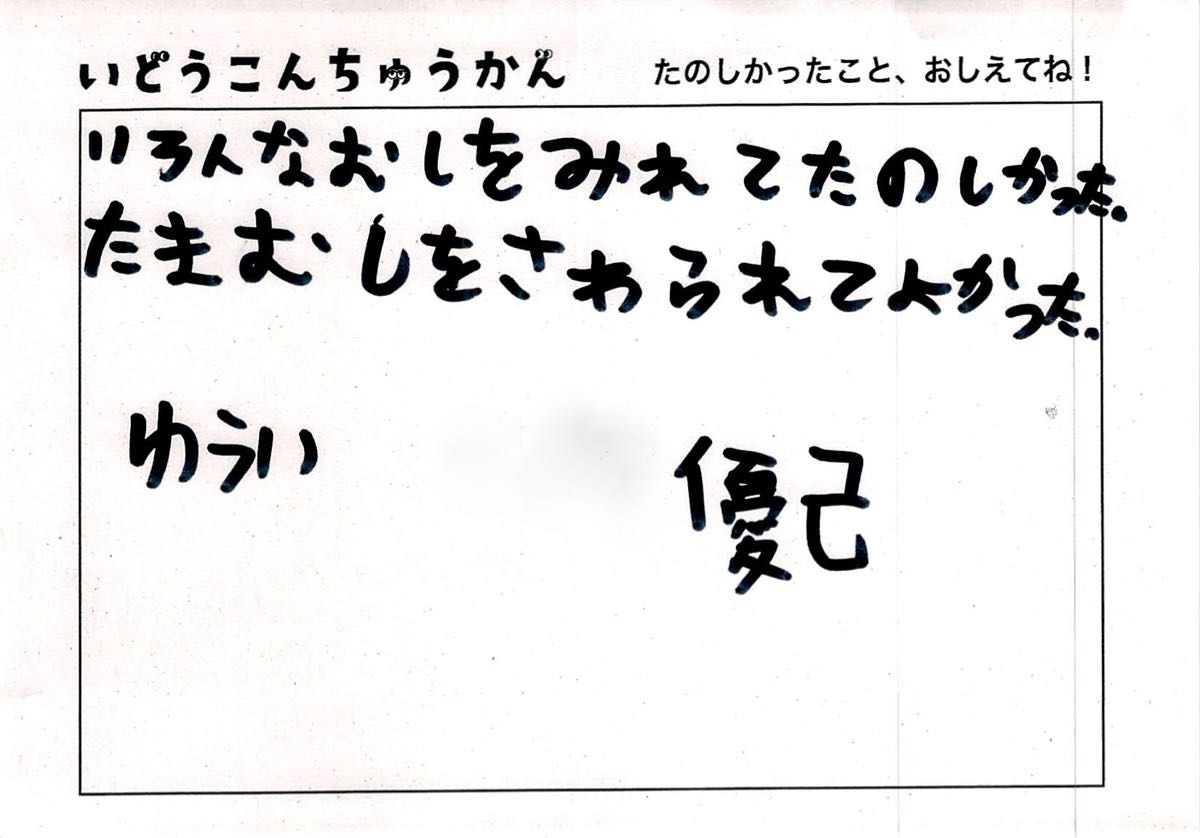 いどうこんちゅうかん
たのしかったこと、おしえてね!
いろんなおしをみれてたのしかった。
たまむしをさわられてよかった。
ゆうい
優己